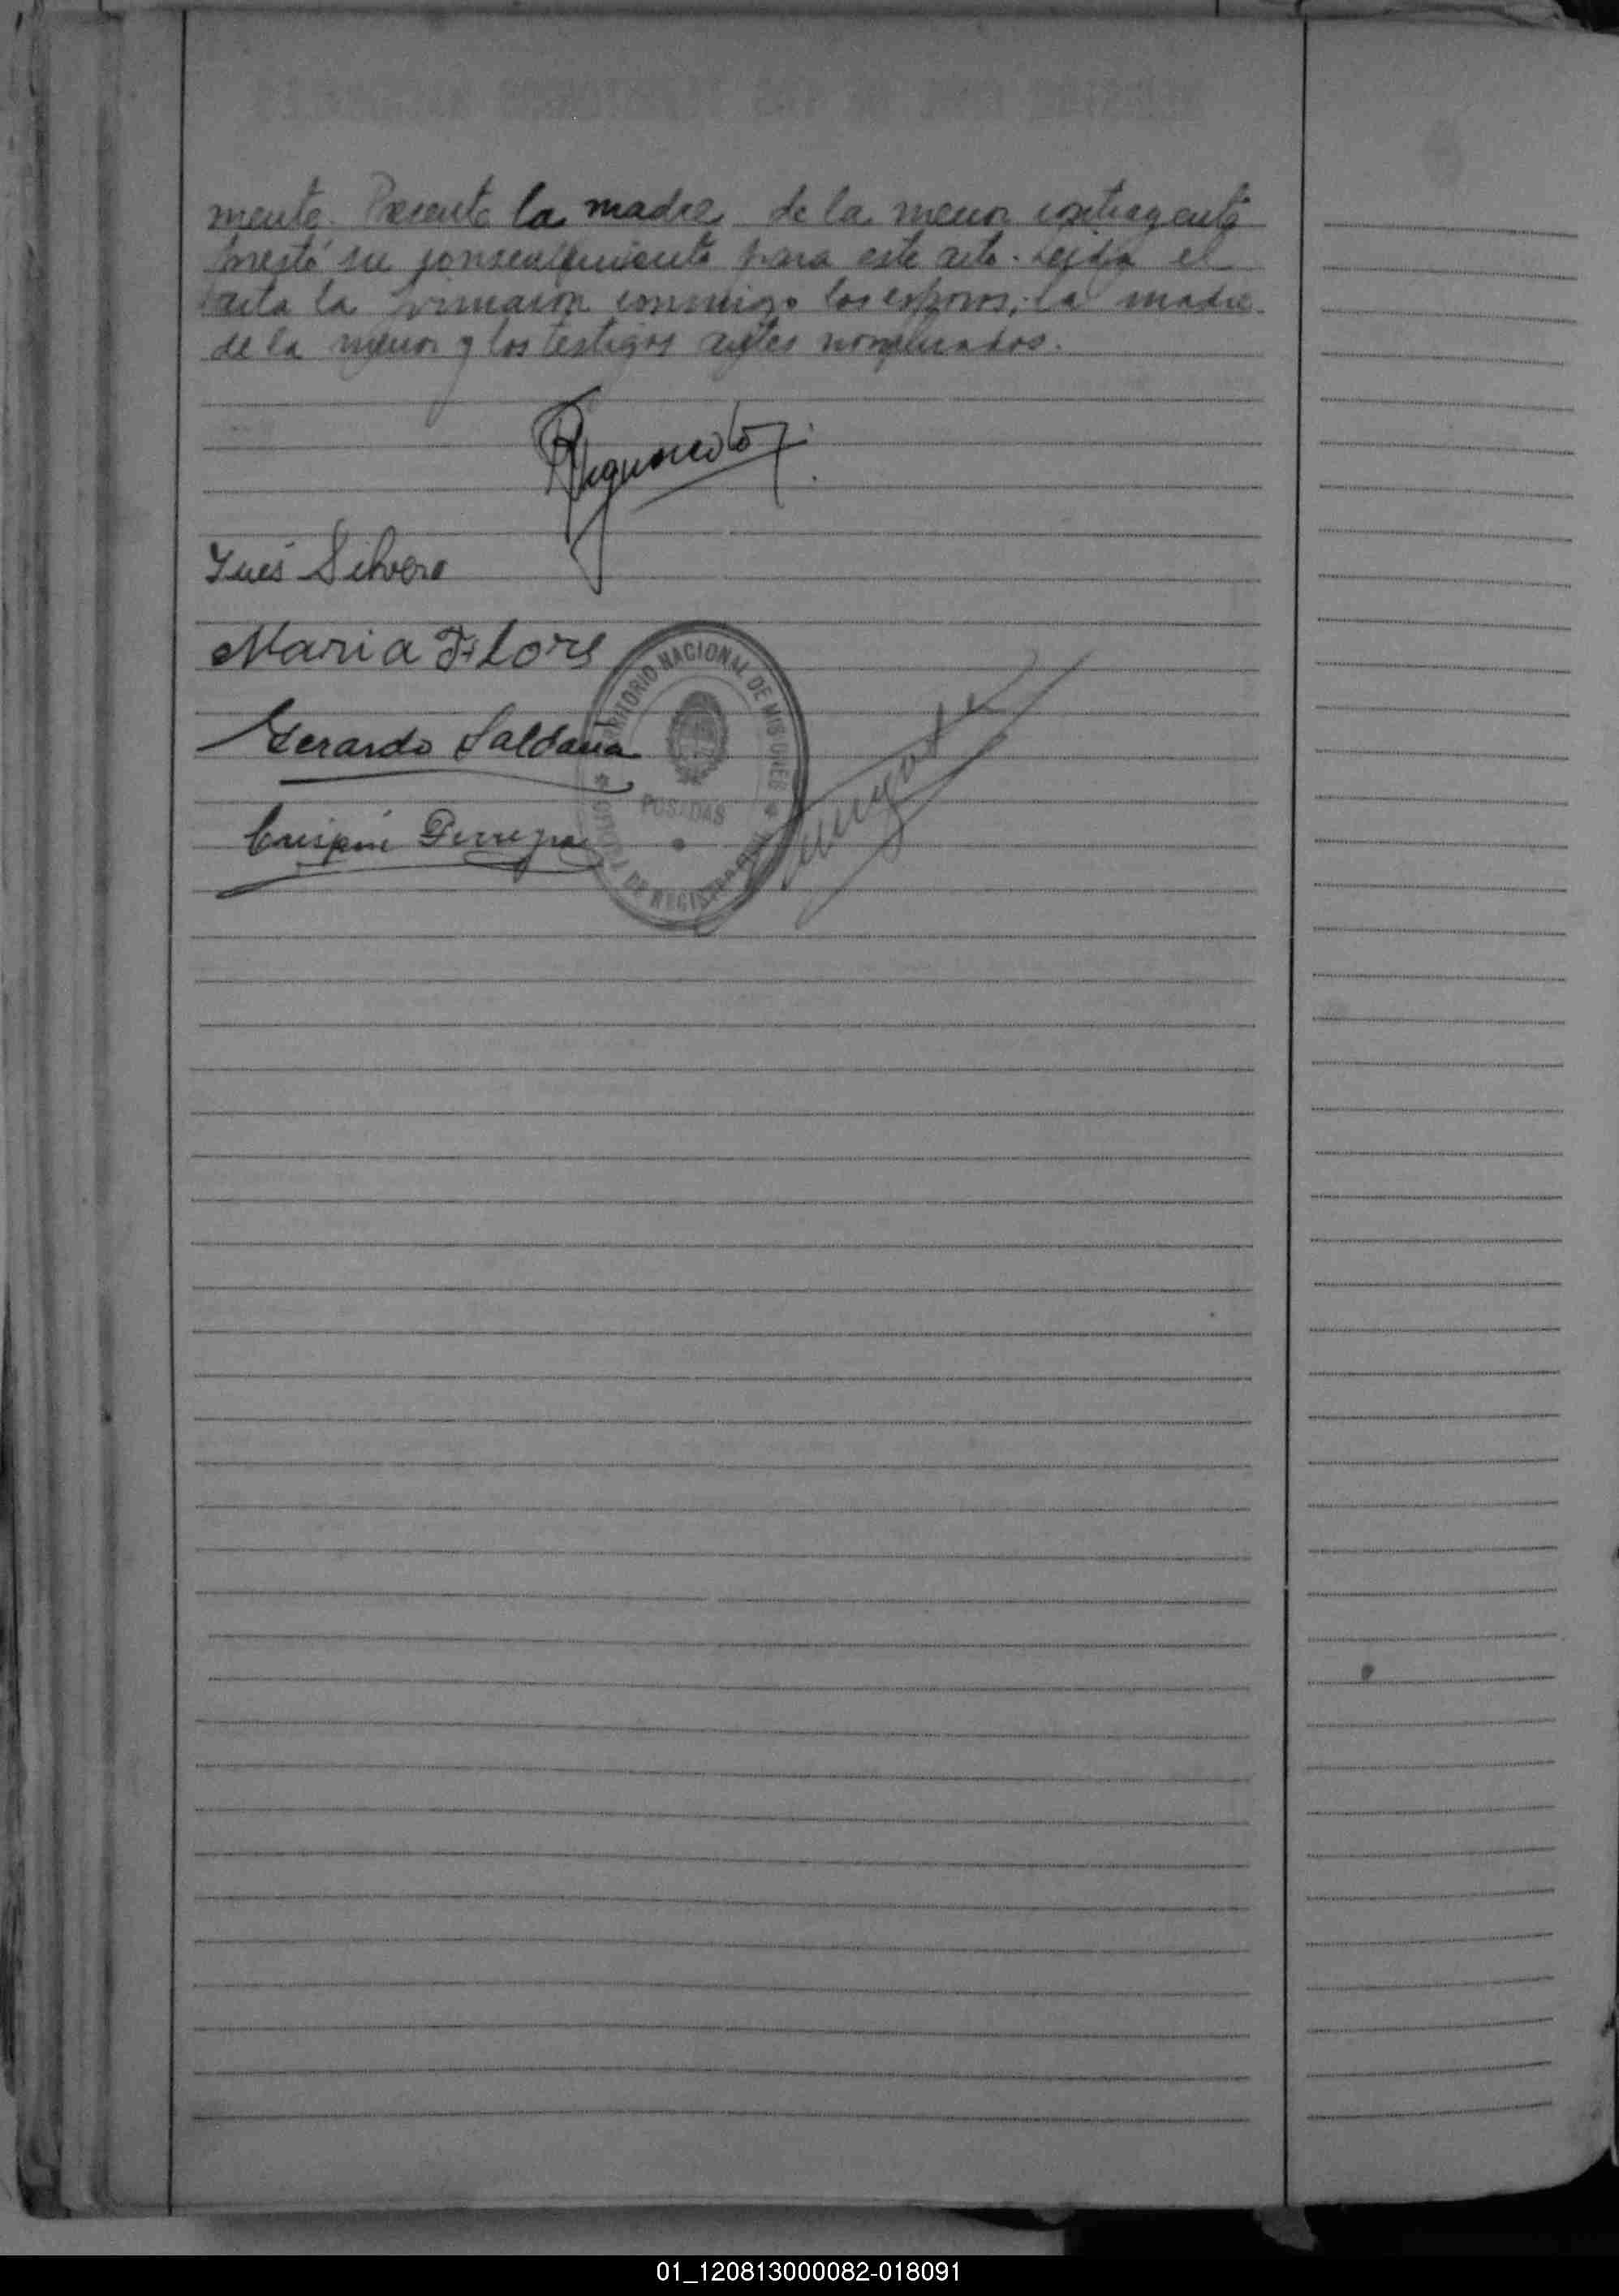 mente. Presente la madre de la menor contrayente
prestó su consentimiento para este acto. Leida el
acta la firmaron conmigo los esposos, la madre
de la menor y los testigos antes nombrados.
Inés Silvero
Maria Flore
Gerardo Saldaña
Crispin
TERRITORIO NACIONAL DE MISIONES
POSADAS
OFICINA DE REGISTRO
01_120813000082-018091